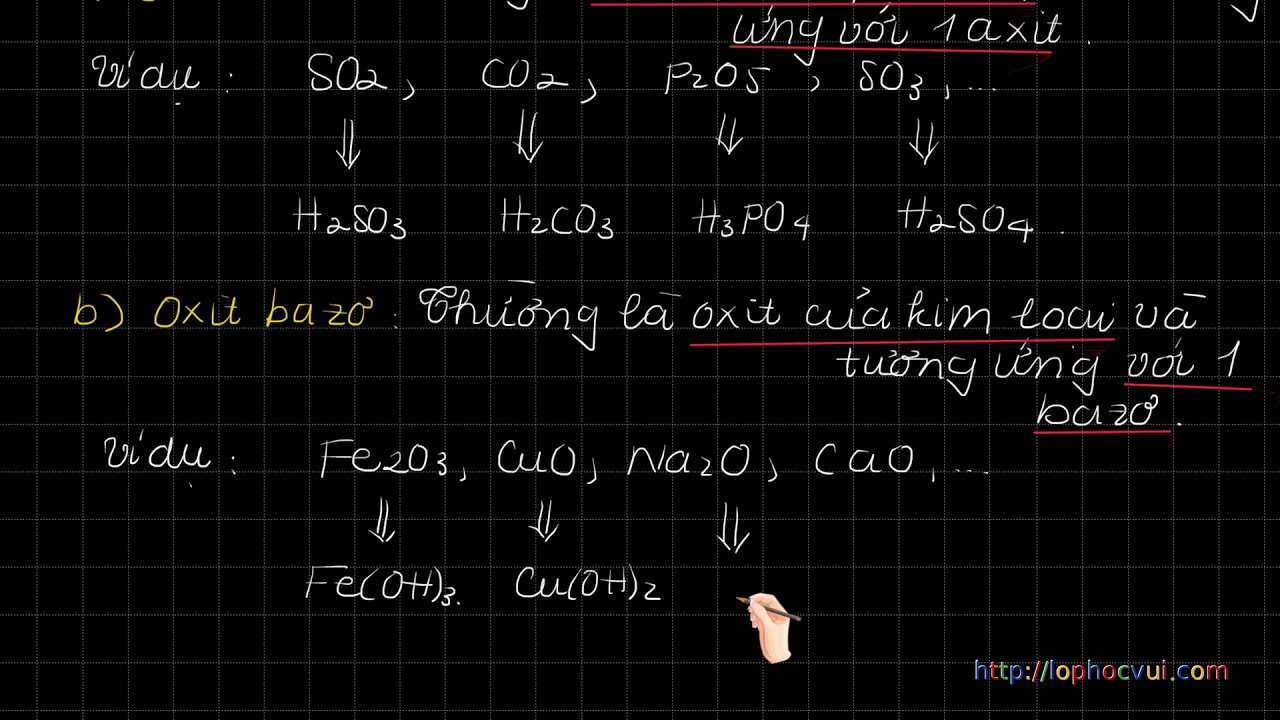 ứng với 1 axit.
Ví dụ: SO2, CO2, P2O5, SO3, ...
⇓ ⇓ ⇓ ⇓
H2SO3 H2CO3 H3PO4 H2SO4.
b) Oxit bazơ: Thường là oxit của kim loại và
tương ứng với 1
bazơ.
Ví dụ: Fe2O3, CuO, Na2O, CaO, ...
⇓ ⇓ ⇓
Fe(OH)3. Cu(OH)2
http://lophocvui.com